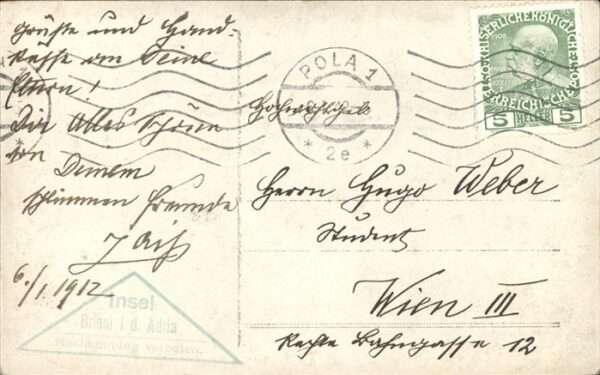 Grüße und Hand-
küsse an Deine
Eltern!
Dir Alles Schöne
von Deinem
schlimmen Freunde
6./1. 1912
Insel
Brioni i. d. Adria
POLA 1
* 2e *
1908
KAISERLICHE KÖNIGLICHE
ÖSTERREICHISCHE POST
5 HELLER 5
Herrn Hugo Weber
Student
Wien III
Rechte Bahngasse 12